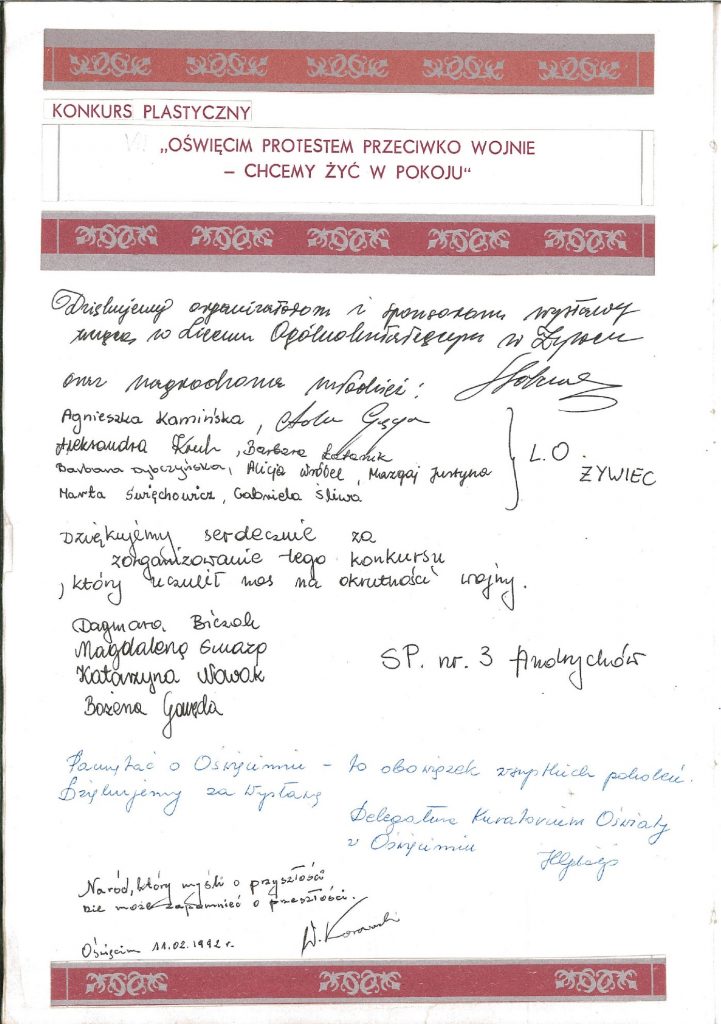 KONKURS PLASTYCZNY
„OŚWIĘCIM PROTESTEM PRZECIWKO WOJNIE
– CHCEMY ŻYĆ W POKOJU“
Dziękujemy organizatorom i sponsorom wystawy
w Liceum Ogólnokształcącym w Żywcu
oraz nagrodzona młodzież:
Agnieszka Kamińska,
Aleksandra Kruk, Barbara
Barbara Rybczyńska, Alicja Wróbel, Murzgaj Justyna
Marta Święchowicz, Gabriela Śliwa
L.O.
ŻYWIEC
Dziękujemy serdecznie za
zorganizowanie tego konkursu
, który uczulił nas na okrutności wojny.
Dagmara Biczak
Magdalena
Katarzyna Nowak
Bożena Gawęda
SP. nr. 3 Andrychów
Pamiętać o Oświęcimiu – to obowiązek wszystkich pokoleń.
Dziękujemy za wystawę
Delegatura Kuratorium Oświaty
w Oświęcimiu
Naród, który myśli o przyszłości
nie może zapomnieć o przeszłości.
Oświęcim 11.02.1992 r.